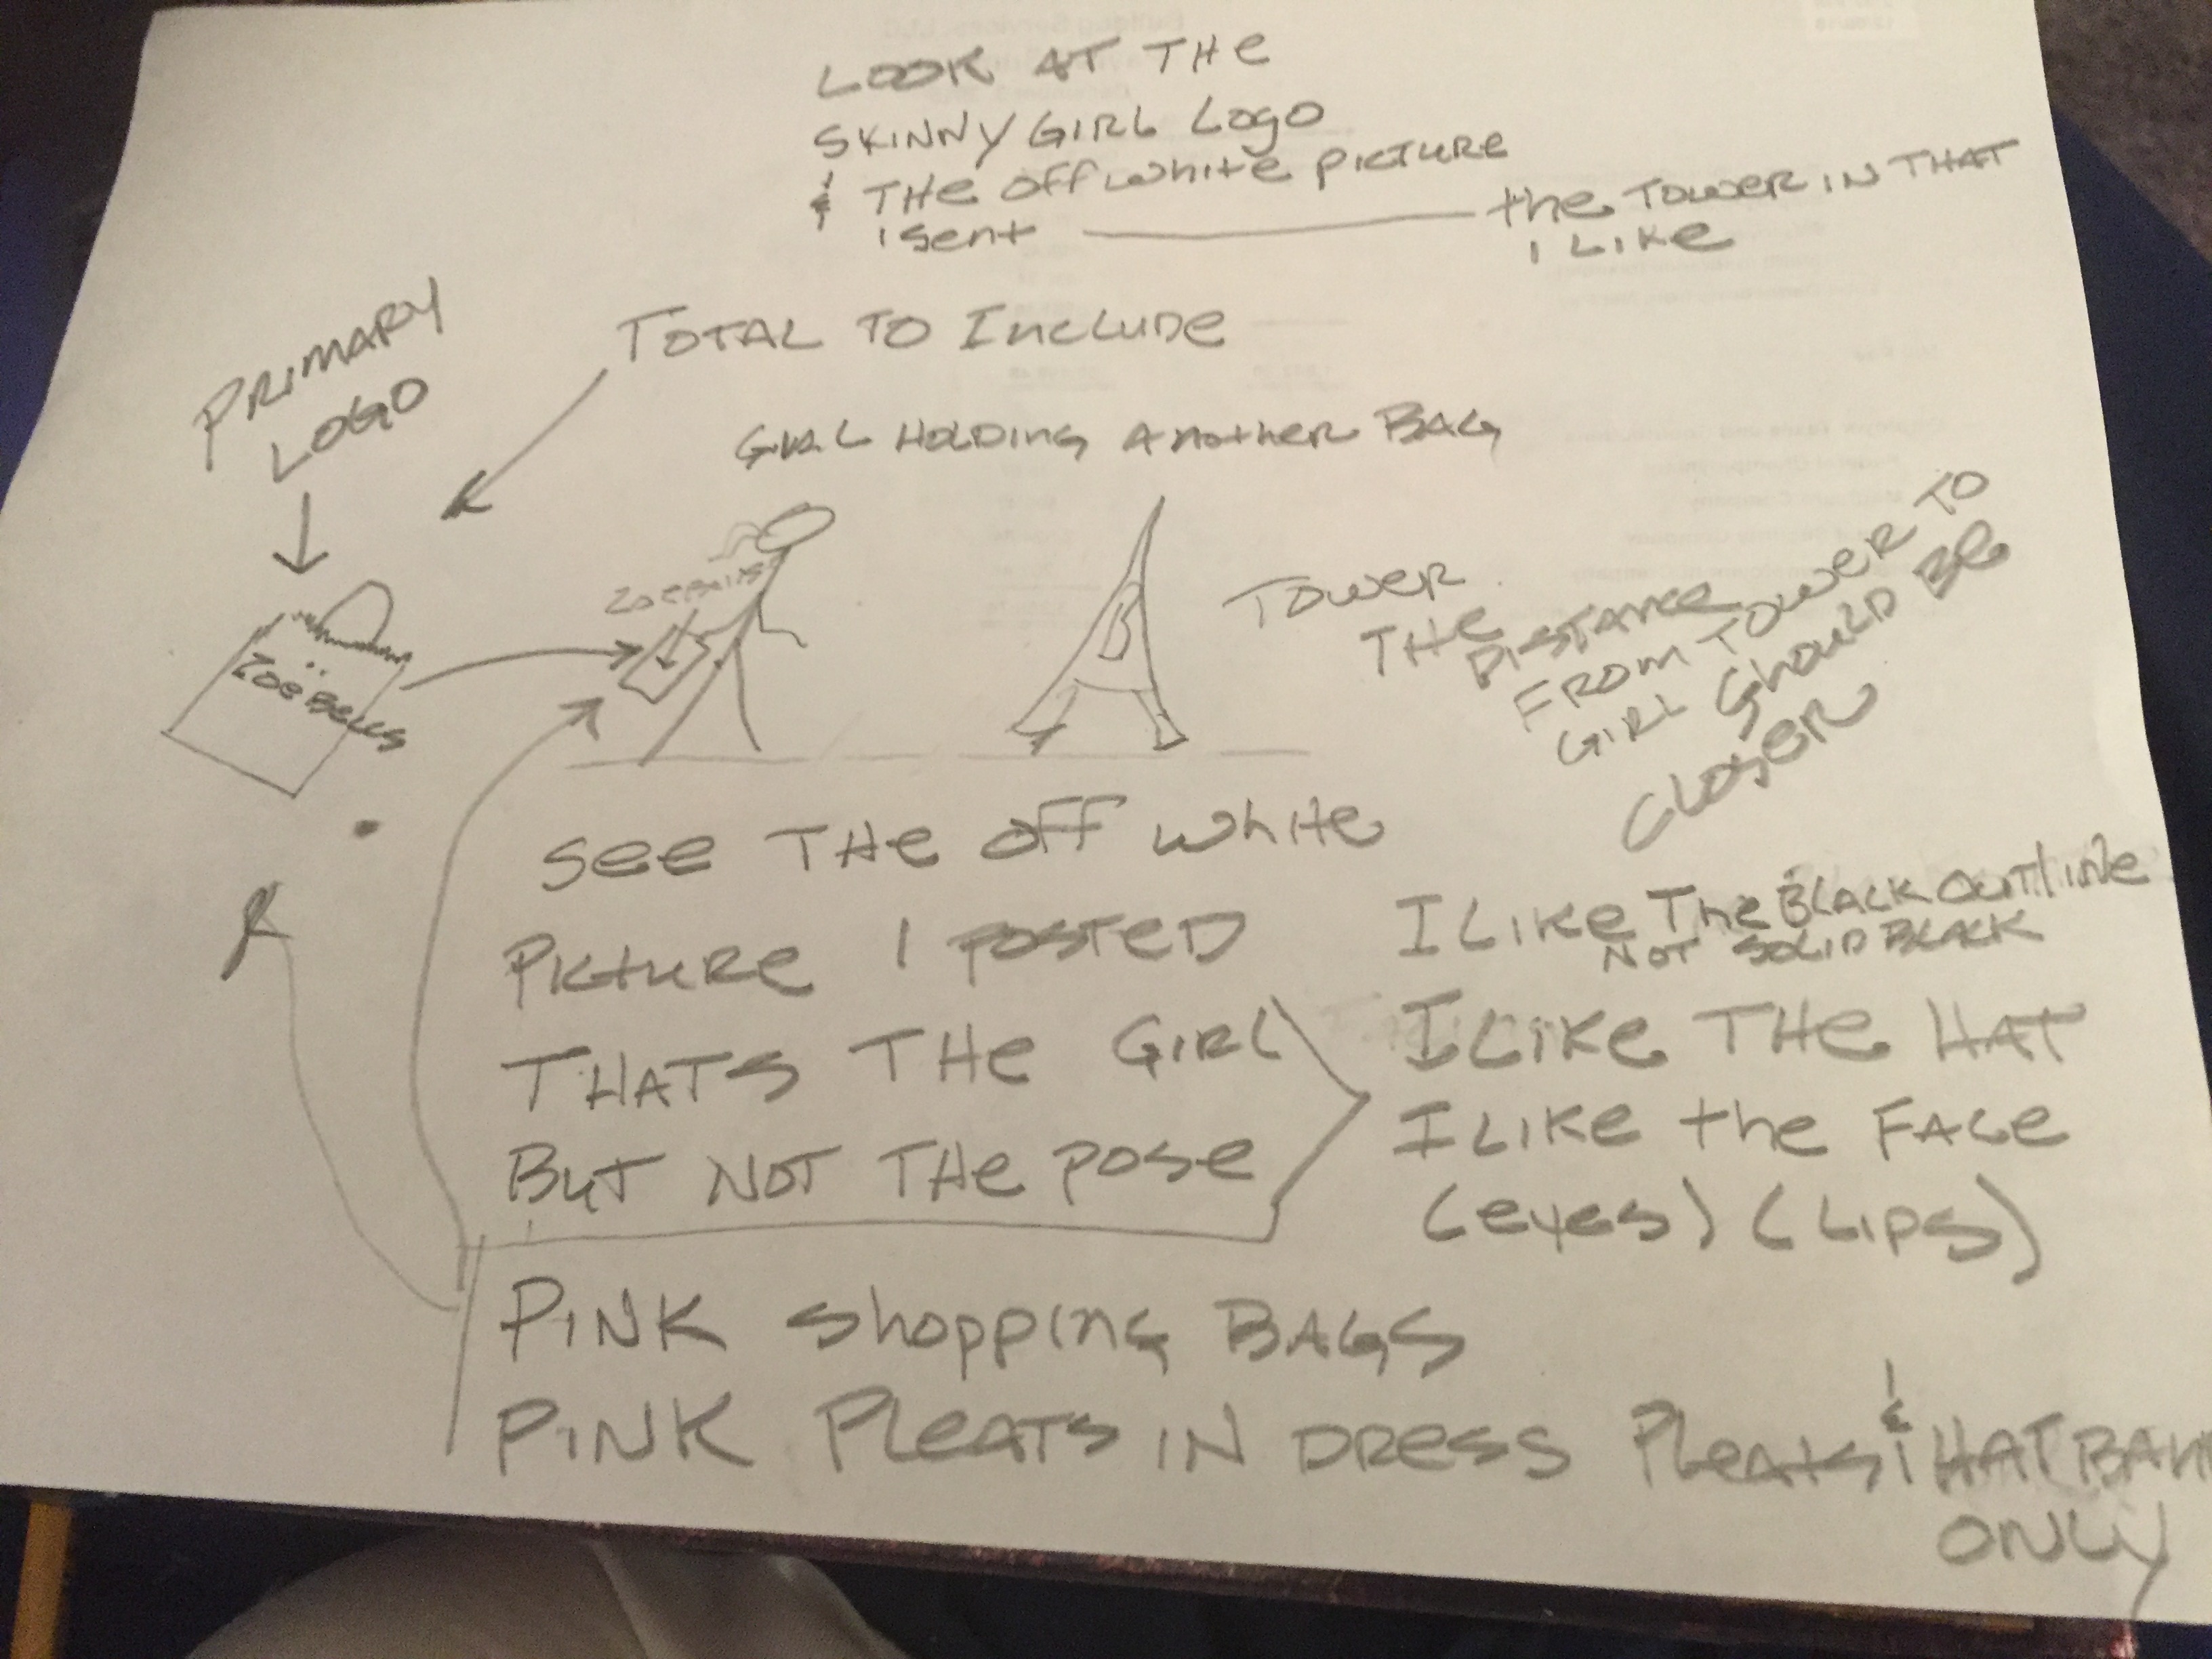 LOOK AT THE
SKINNY GIRL LOGO
& THE OFF WHITE PICTURE
I sent
the TOWER IN THAT
I LIKE
PRIMARY
LOGO
TOTAL TO INCLUDE
GIRL HOLDING ANOTHER BAG
ZOËBELLS
TOWER
THE
DISTANCE
FROM TOWER TO
GIRL SHOULD BE
CLOSER
SEE THE OFF WHITE
PICTURE I POSTED
THATS THE GIRL
BUT NOT THE POSE
I LIKE THE BLACK OUTLINE
NOT SOLID BLACK
I LIKE THE HAT
I LIKE the FACE
(eyes) (LIPS)
PINK Shopping BAGS
PINK PLEATS IN DRESS PLEATS & HAT
ONLY